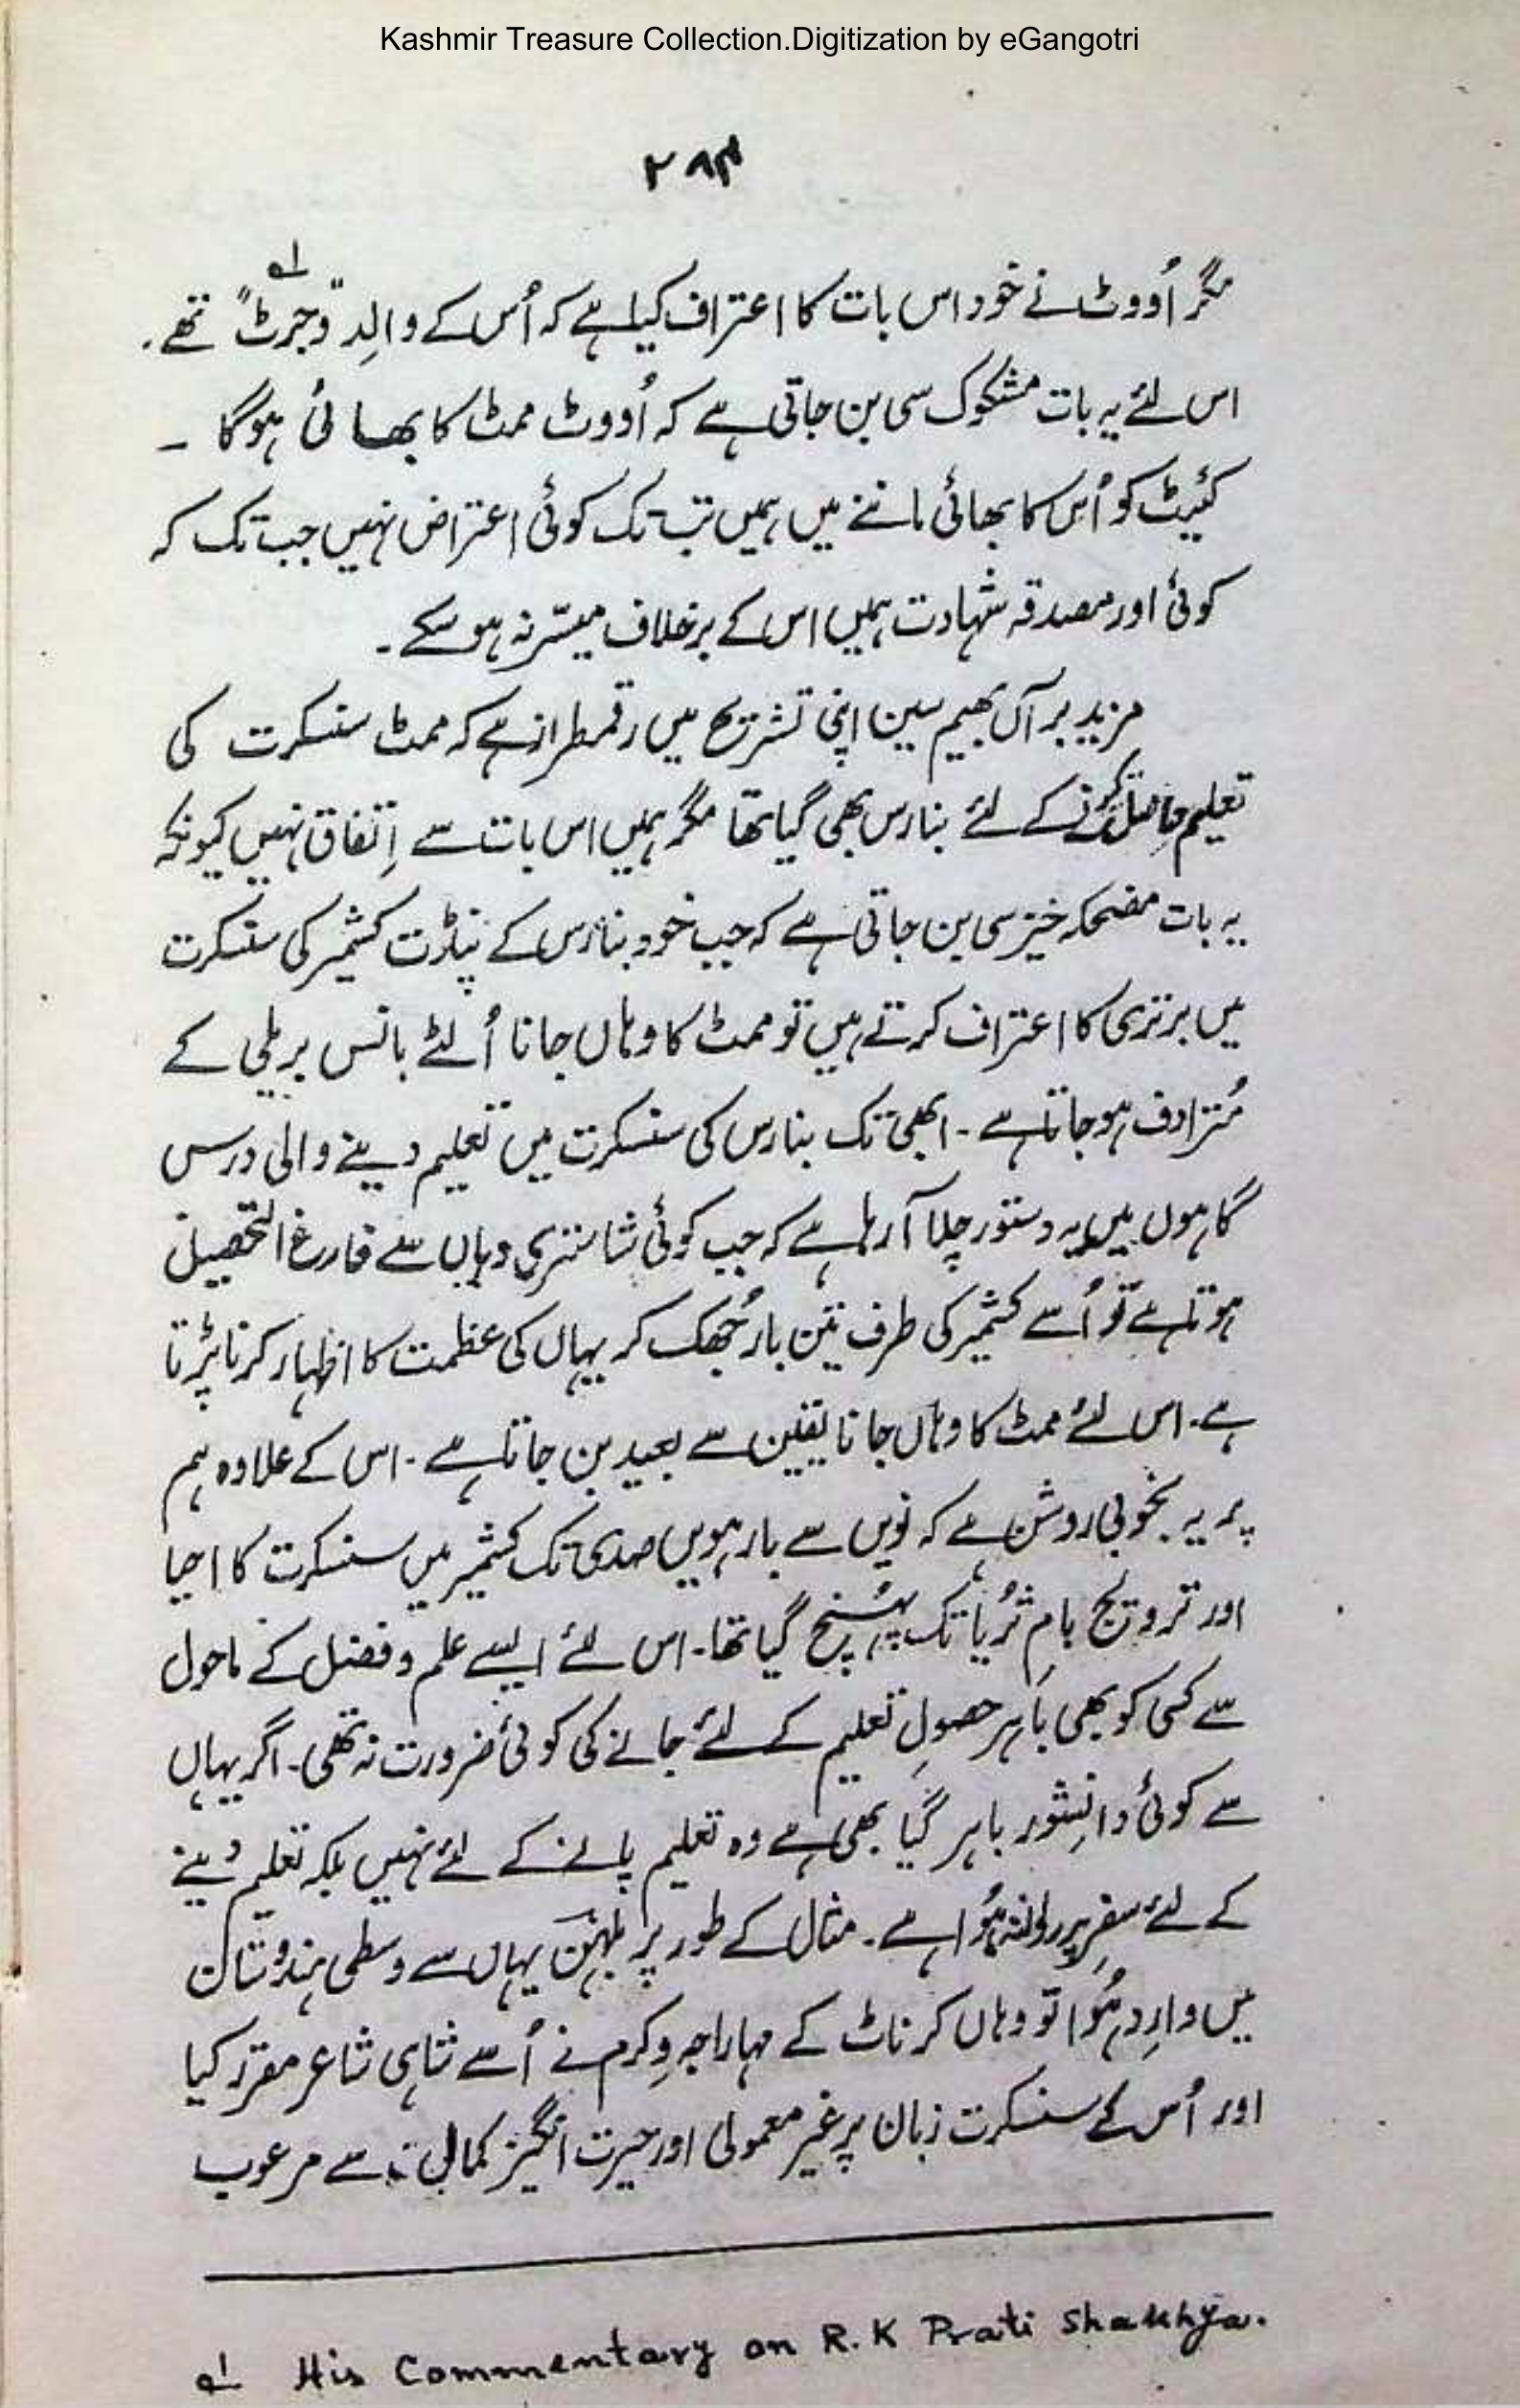 Kashmir Treasure Collection.Digitization by eGangotri
۲۸۴
مگر اُووٹ نے خود اس بات کا اعتراف کیا ہے کہ اُس کے والِد "وجرٹ" لہ تھے۔
اس لئے یہ بات مشکوک سی بن جاتی ہے کہ اُووٹ ممٹ کا بھائی ہوگا ۔
کئیٹ کو اُس کا بھائی ماننے میں ہمیں تب تک کوئی اعتراض نہیں جب تک کہ
کوئی اور مصدقہ شہادت ہمیں اس کے برخلاف میسّر نہ ہو سکے ۔
مزید برآں بھیم سین اپنی تشریح میں رقمطراز ہے کہ ممٹ سنسکرت کی
تعلیم حاصل کرنے کے لئے بنارس بھی گیا تھا مگر ہمیں اس بات سے اِتفاق نہیں کیونکہ
یہ بات مضحکہ خیز سی بن جاتی ہے کہ جب خود بنارس کے پنڈت کشمیر کی سنسکرت
میں برتری کا اعتراف کرتے ہیں تو ممٹ کا وہاں جانا اُلٹے بانس بریلی کے
مُترادف ہو جاتا ہے ۔ ابھی تک بنارس کی سنسکرت میں تعلیم دینے والی درس
گاہوں میں یہ دستور چلا آ رہا ہے کہ جب کوئی شاستری وہاں سے فارغ التحصیل
ہوتا ہے تو اُسے کشمیر کی طرف تین بار جُھک کر یہاں کی عظمت کا اظہار کرنا پڑتا
ہے۔ اس لئے ممٹ کا وہاں جانا یقین سے بعید بن جاتا ہے ۔ اس کے علاوہ ہم
پر یہ بخوبی روشن ہے کہ نویں سے بارہویں صدی تک کشمیر میں سنسکرت کا احیا
اور ترویج بامِ ثُریا تک پہُنچ گیا تھا۔ اس لئے ایسے علم و فضل کے ماحول
سے کسی کو بھی باہر حصولِ تعلیم کے لئے جانے کی کوئی ضرورت نہ تھی۔ اگر یہاں
سے کوئی دانشور باہر گیا بھی ہے وہ تعلیم پانے کے لئے نہیں بلکہ تعلیم دینے
کے لئے سفر پر روانہ ہُوا ہے ۔ مثال کے طور پر بلہن یہاں سے وسطی ہندوستان
میں وارِد ہُوا تو وہاں کرناٹ کے مہاراجہ وِکرم نے اُسے شاہی شاعر مقرر کیا
اور اُس کے سنسکرت زبان پر غیر معمولی اور حیرت انگیز کمال سے مرعوب
لہ His Commentary on R.K Prati Shakhya.